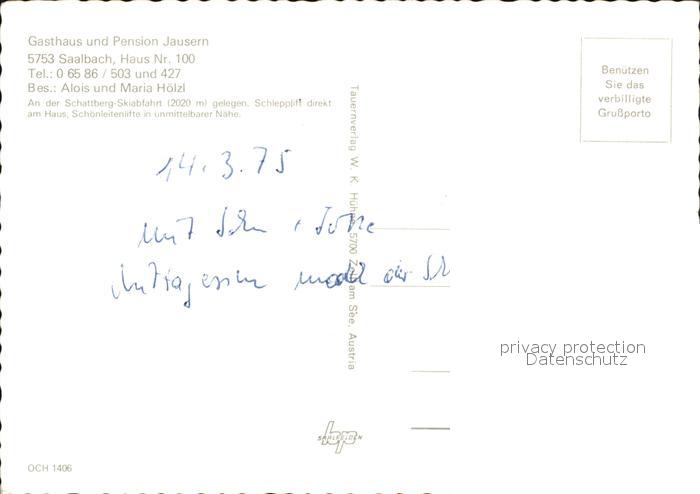 Gasthaus und Pension Jausern
5753 Saalbach, Haus Nr. 100
Tel.: 0 65 86 / 503 und 427
Bes.: Alois und Maria Hölzl
An der Schattberg-Skiabfahrt (2020 m) gelegen. Schlepplift direkt
am Haus, Schönleitenlifte in unmittelbarer Nähe.
Benützen
Sie das
verbilligte
Grußporto
14.3.75
mit
Mittagessen
Tauernverlag W. K. 5700 Zell am See, Austria
privacy protection
Datenschutz
SAALFELDEN
OCH 1406